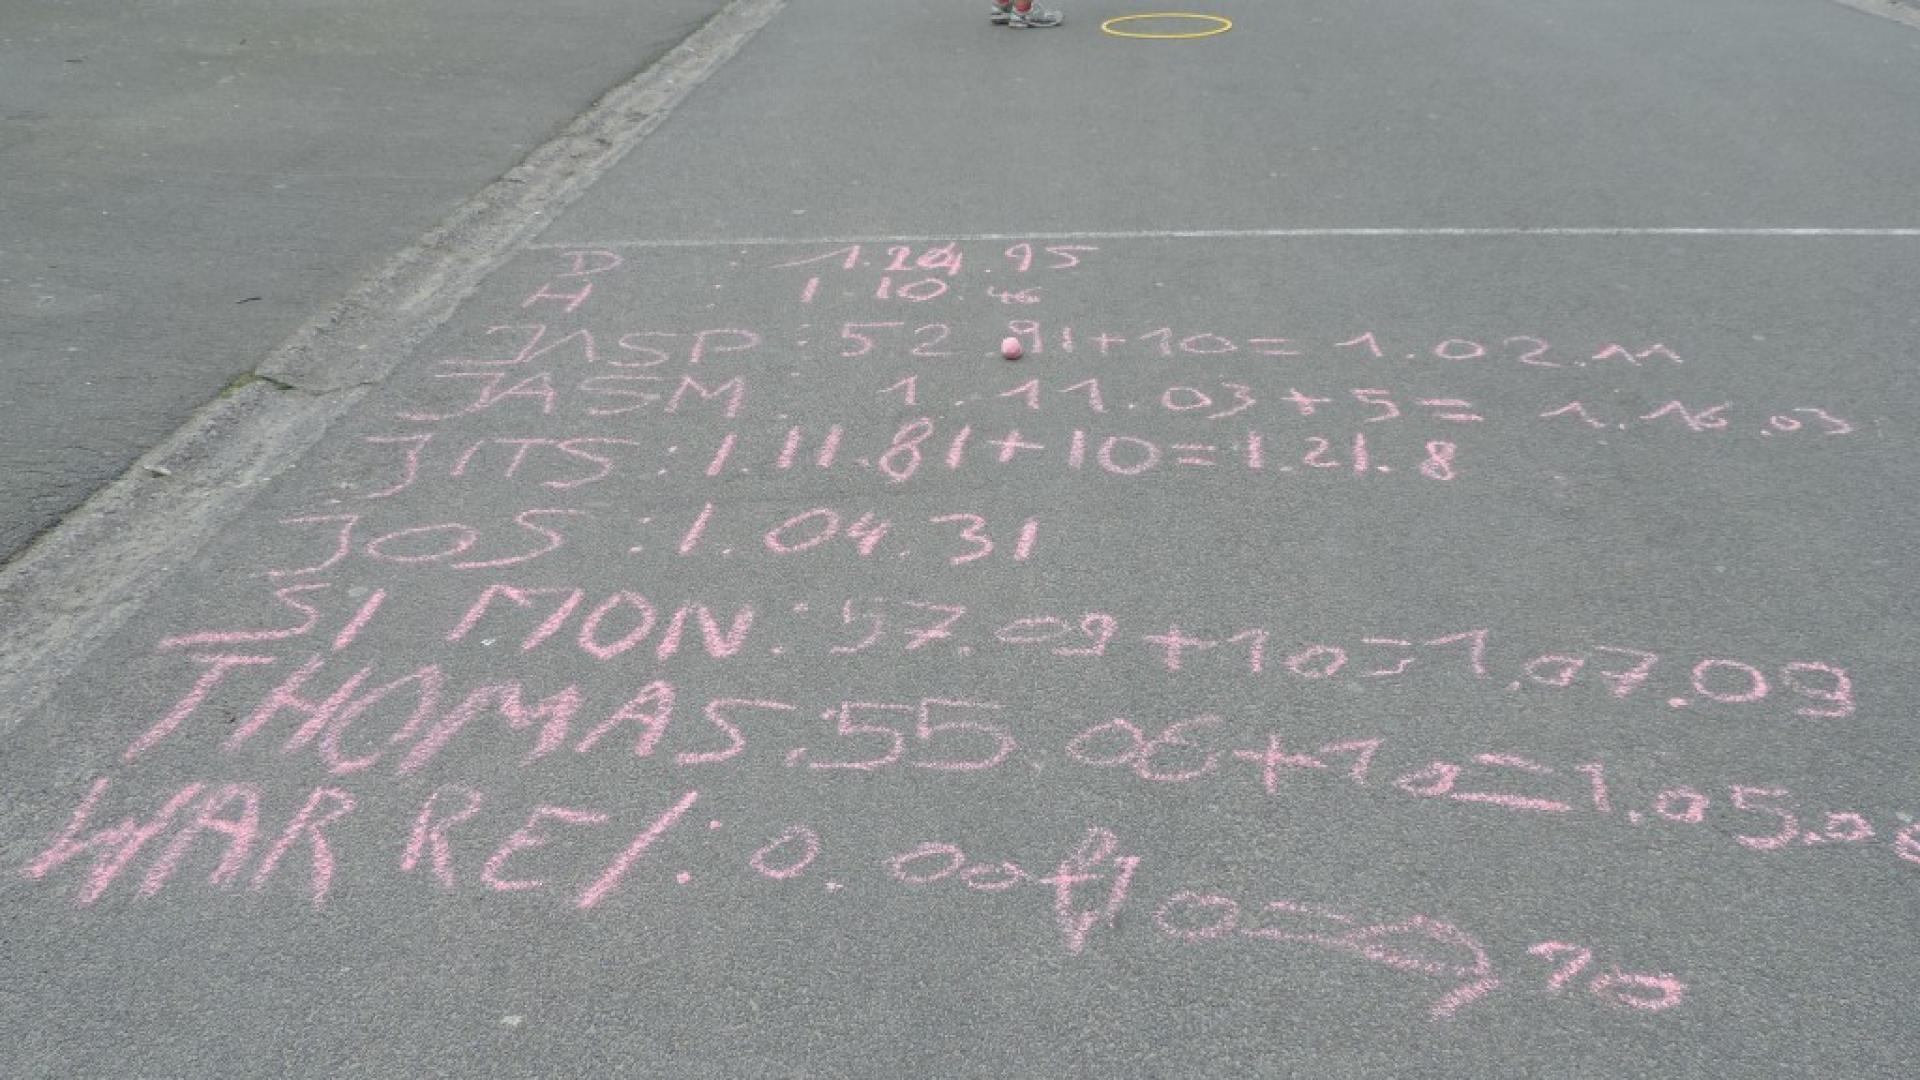 D 1.24.95
H 1.10.46
JASP : 52.91+10= 1.02.11
JASM 1.11.03+5= 1.16.03
JITS : 1.11.81+10=1.21.8
JOS : 1.04.31
SIMON : 57.09+10=1.07.09
THOMAS : 55.06+10=1.05.06
WARRE/ : 0.00+10=10